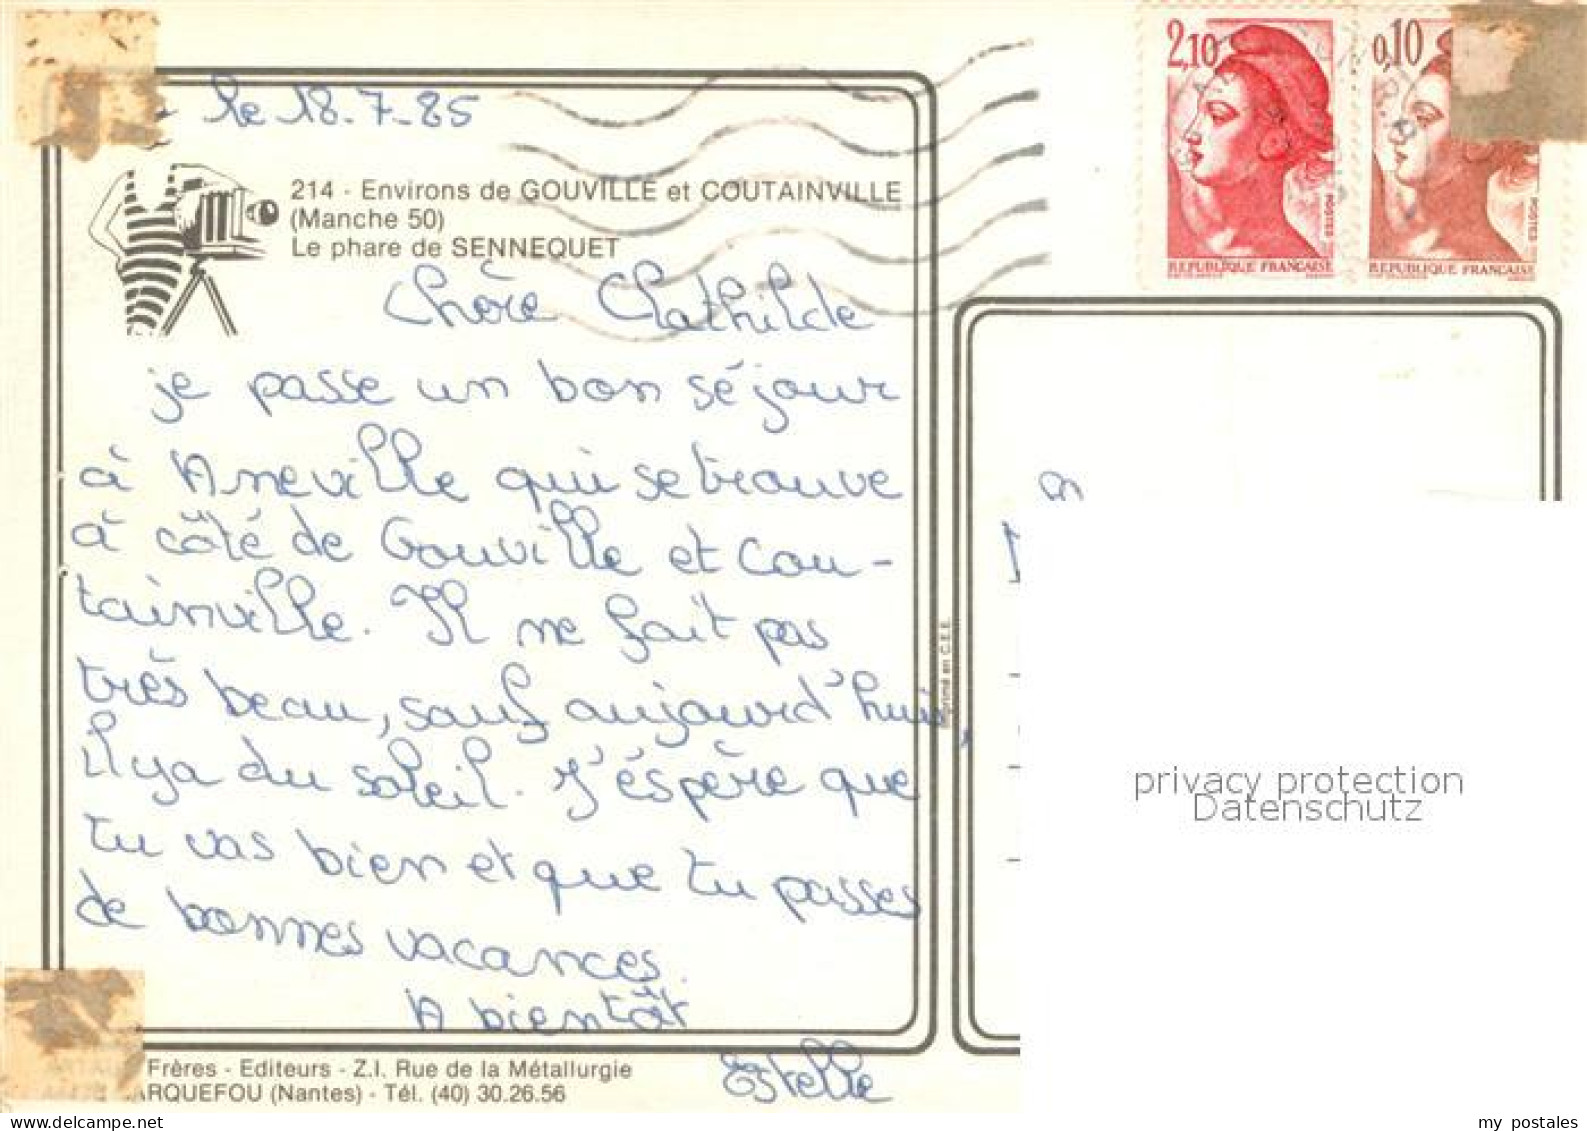 le 18-7-85
2,10
0,10
214 - Environs de GOUVILLE et COUTAINVILLE
(Manche 50)
Le phare de SENNEQUET
POSTES
POSTES
REPUBLIQUE FRANÇAISE
REPUBLIQUE FRANÇAISE
Chère Clathilde
je passe un bon séjour
à Aneville qui se trouve
à côté de Gouville et Cou-
tainville. Il ne fait pas
très beau, sauf aujourd'hui,
il y a du soleil. J'éspère que
tu vas bien et que tu passes
de bonnes vacances.
A bientôt
Estelle
en C.E.E.
privacy protection
Datenschutz
Frères - Editeurs - Z.I. Rue de la Métallurgie
ARQUEFOU (Nantes) - Tél. (40) 30.26.56
www.delcampe.net
my postales